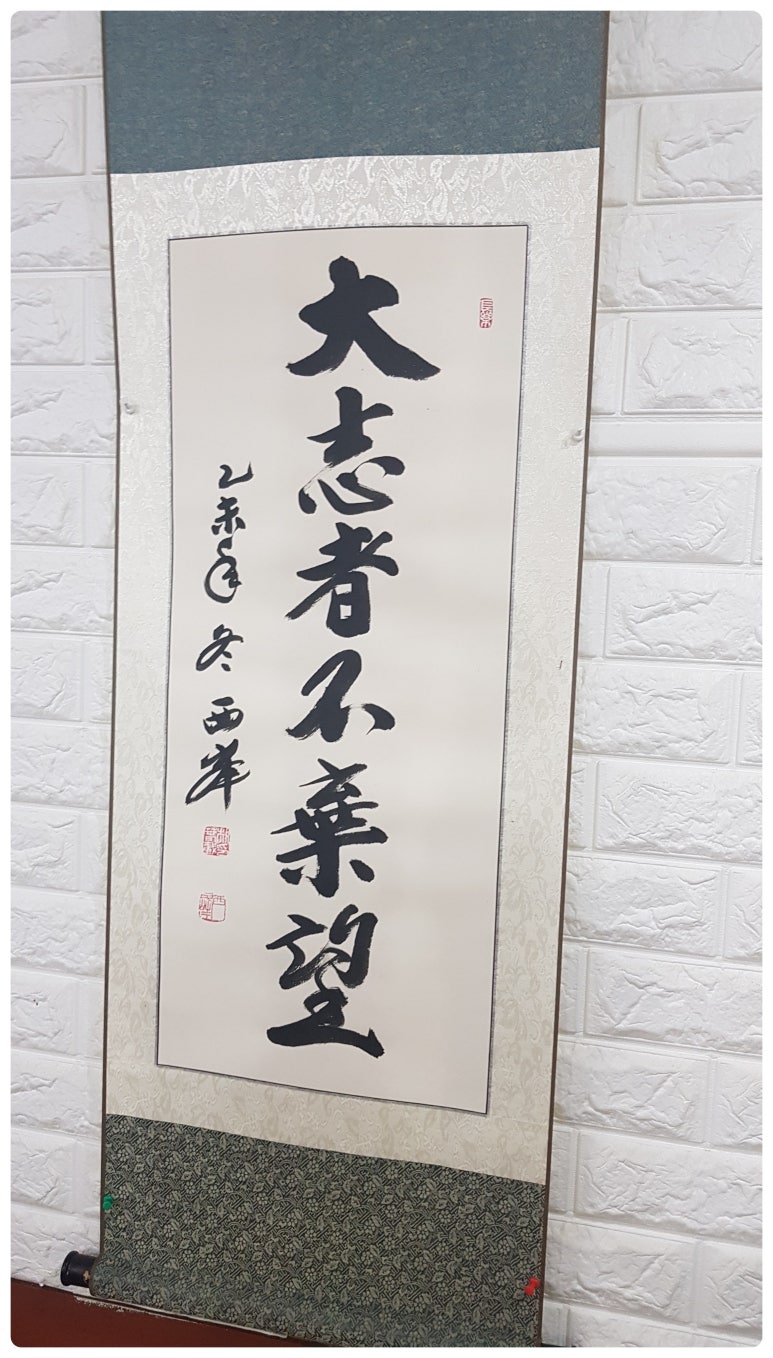 大志者不棄望
乙未年 冬 西峯